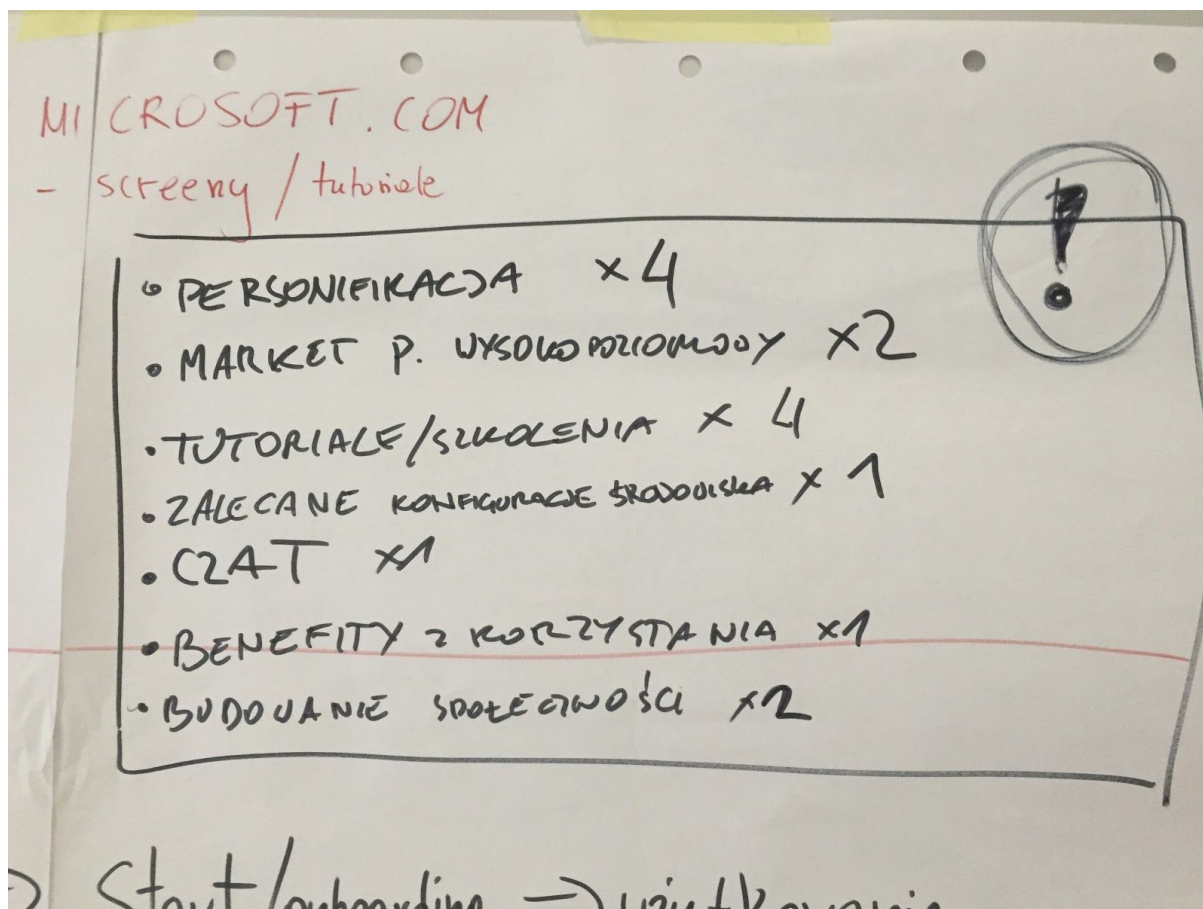 MICROSOFT.COM
- screeny / tutoriale
!
• PERSONIFIKACJA x4
• MARKET P. WYSOKOPOZIOMOWY x2
• TUTORIALE/SZKOLENIA x 4
• ZALECANE KONFIGURACJE ŚRODOWISKA x 1
• CZAT x1
• BENEFITY Z KORZYSTANIA x1
• BUDOWANIE SPOŁECZNOŚCI x2
Start/onboarding → użytkowanie